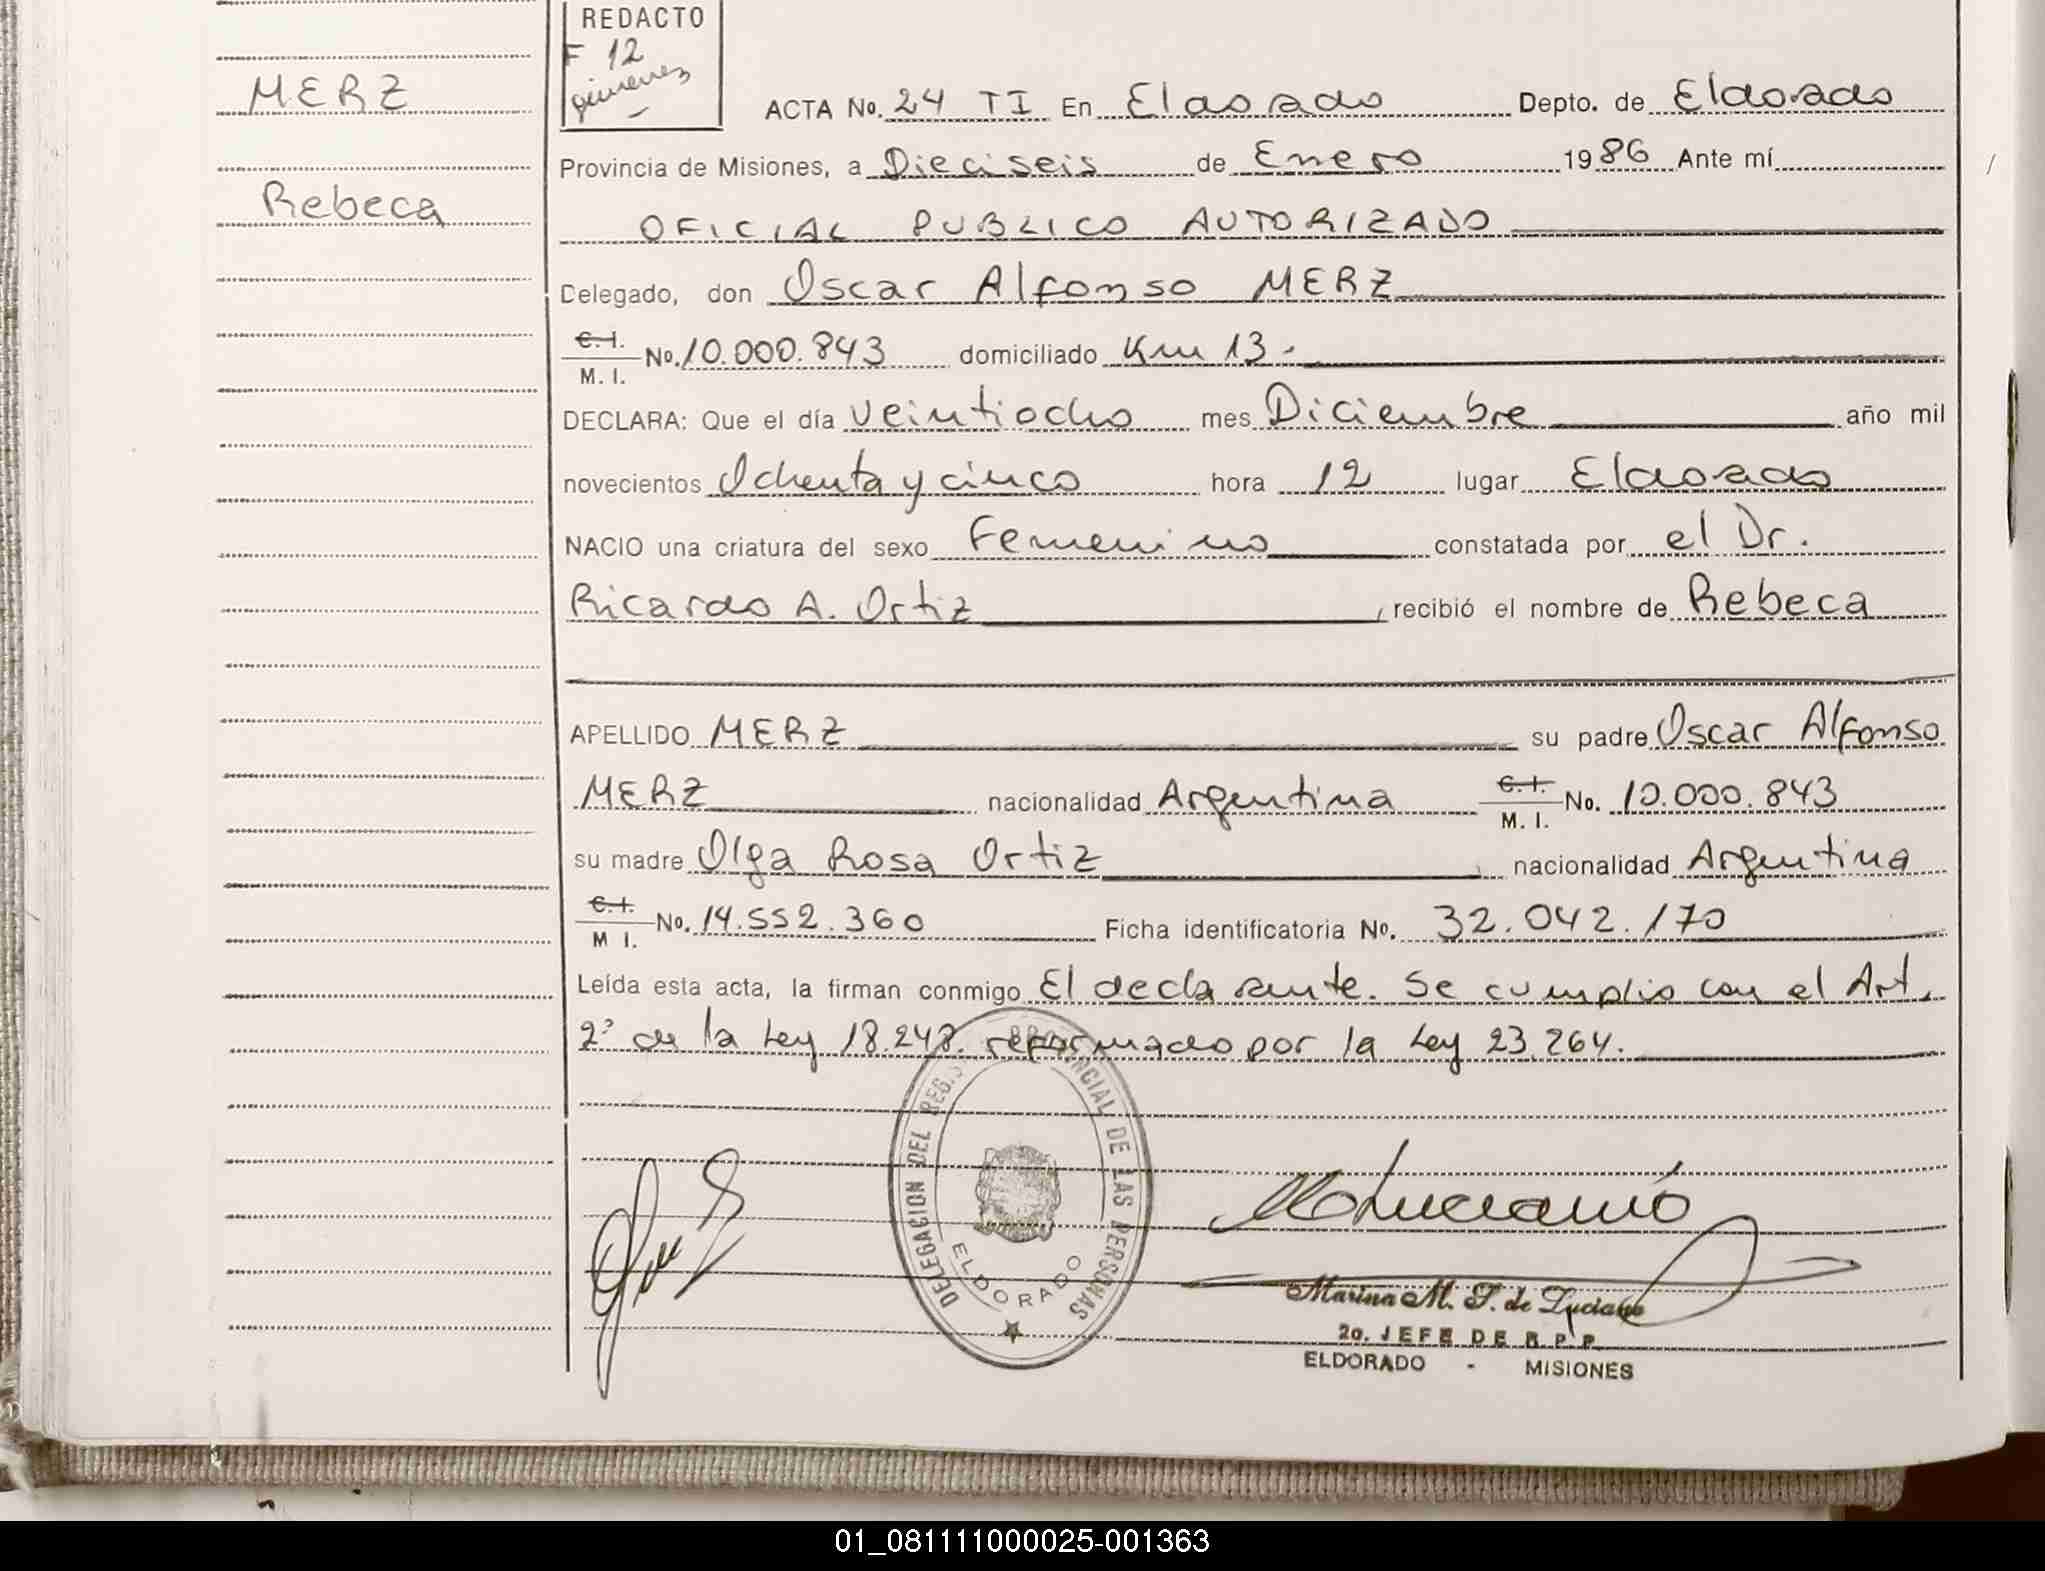 REDACTO
F 12
gimenez
MERZ
Rebeca
ACTA No. 24 TI En Eldorado Depto. de Eldorado
Provincia de Misiones, a Dieciseis de Enero 1986 Ante mí
OFICIAL PUBLICO AUTORIZADO
Delegado, don Oscar Alfonso MERZ
C. I. M. I. No. 10.000.843 domiciliado Km 13.
DECLARA: Que el día veintiocho mes Diciembre año mil
novecientos Ochenta y cinco hora 12 lugar Eldorado
NACIO una criatura del sexo Femenino constatada por el Dr.
Ricardo A. Ortiz, recibió el nombre de Rebeca
APELLIDO MERZ su padre Oscar Alfonso
MERZ nacionalidad Argentina C. I. M. I. No. 10.000.843
su madre Olga Rosa Ortiz nacionalidad Argentina
C. I. M I. No. 14.552.360 Ficha identificatoria No. 32.042.170
Leída esta acta, la firman conmigo El declarante. Se cumplio con el Art.
2º de la Ley 18.248. reformado por la Ley 23.264.
DELEGACION DEL REGIS PROVINCIAL DE LAS PERSONAS
ELDORADO
Marina M. F. de Luciano
2o. JEFE DE R. P. P.
ELDORADO - MISIONES
01_081111000025-001363